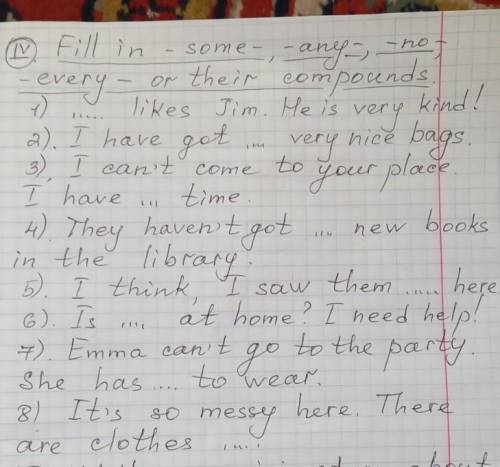 IV Fill in - some -, - any -, - no -,
- every - or their compounds.
1) ..... likes Jim. He is very kind!
2). I have got .... very nice bags.
3). I can't come to your place.
I have ... time.
4). They haven't got ... new books
in the library.
5). I think, I saw them ..... here
6). Is .... at home? I need help!
7). Emma can't go to the party.
She has .... to wear.
8) It's so messy here. There
are clothes .....